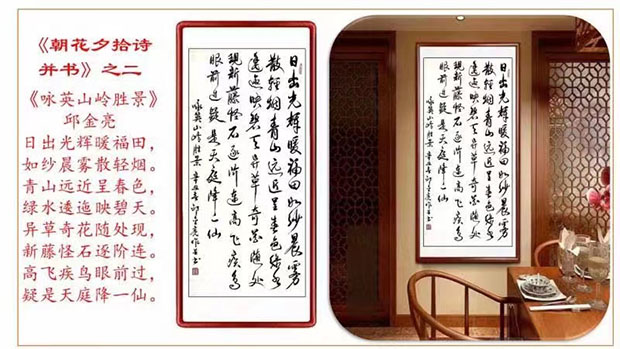 《朝花夕拾诗
并书》之二
《咏英山岭胜景》
邱金亮
日出光辉暖福田，
如纱晨雾散轻烟。
青山远近呈春色，
绿水逶迤映碧天。
异草奇花随处现，
新藤怪石逐阶连。
高飞疾鸟眼前过，
疑是天庭降一仙。
日出光辉暖福田如纱晨雾
散轻烟青山远近呈春色绿水
逶迤映碧天异草奇花随处
现新藤怪石逐阶连高飞疾鸟
眼前过疑是天庭降一仙
咏英山岭胜景
日出光辉暖福田如纱晨雾
散轻烟青山远近呈春色绿水
逶迤映碧天异草奇花随处
现新藤怪石逐阶连高飞疾鸟
眼前过疑是天庭降一仙
咏英山岭胜景